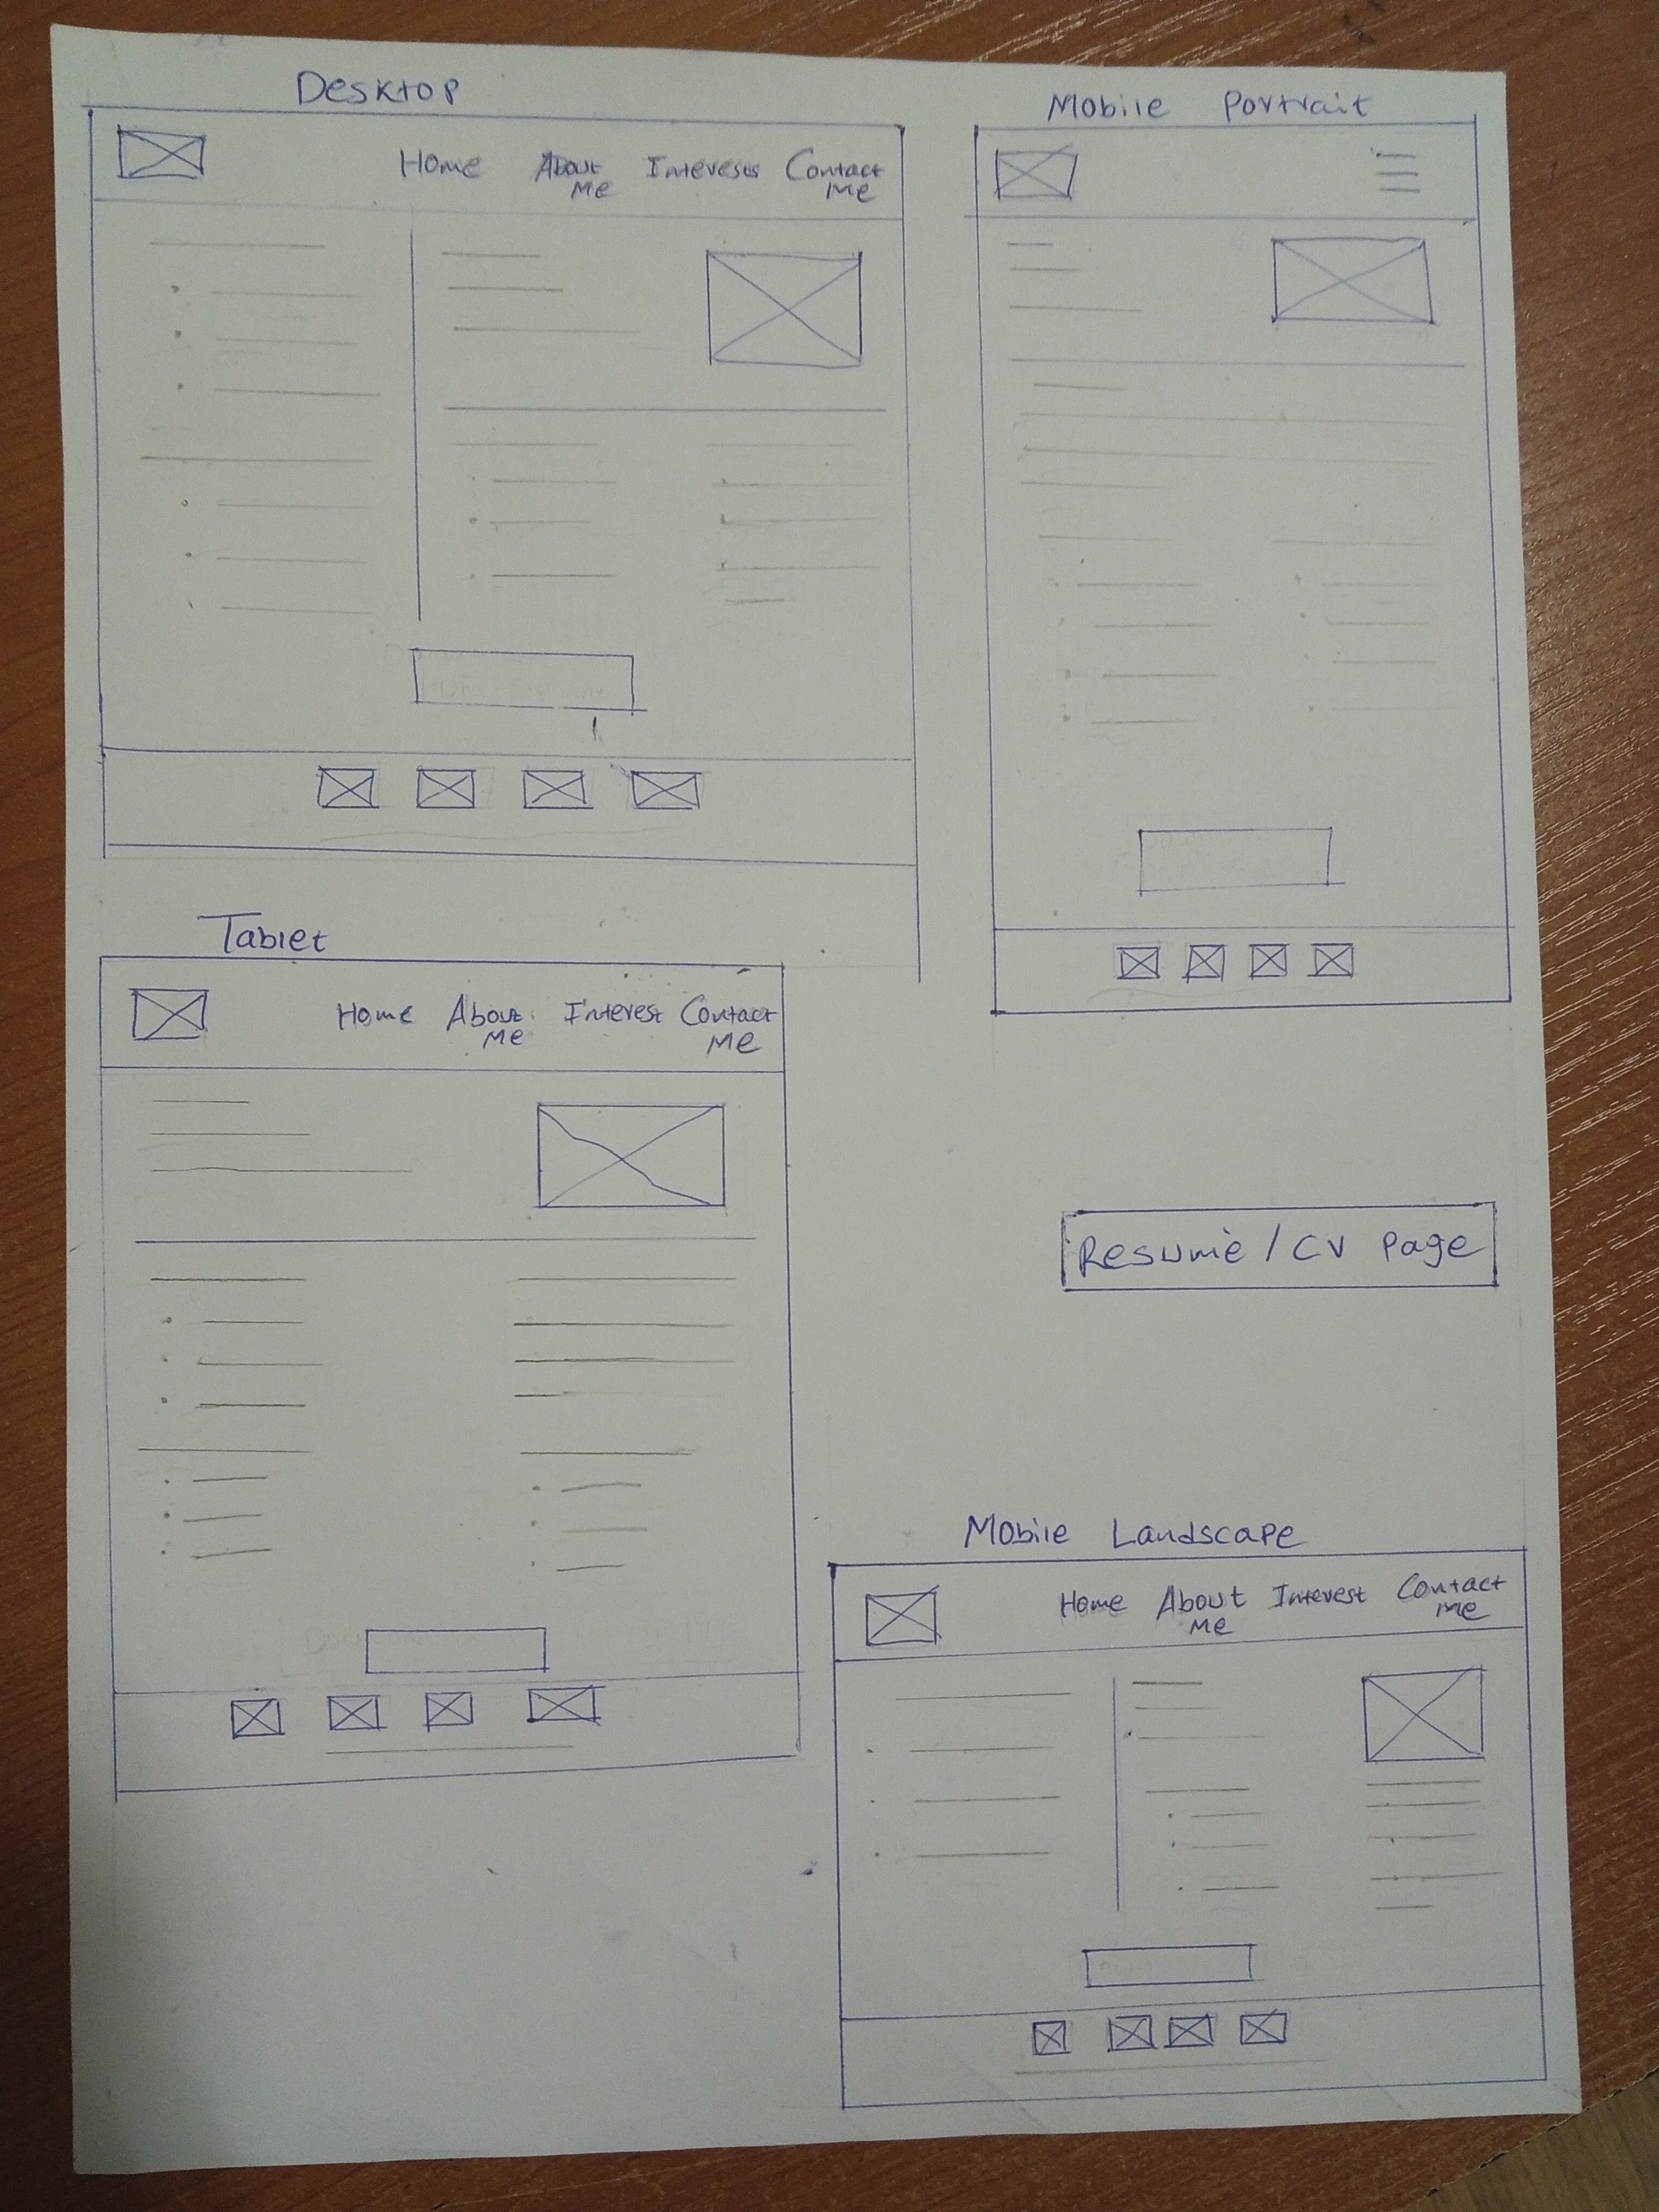 Desktop
Home About Interests Contact
Me Me
Mobile Portrait
Tablet
Home About Interest Contact
Me Me
Resumè / CV Page
Mobile Landscape
Home About Interest Contact
Me Me